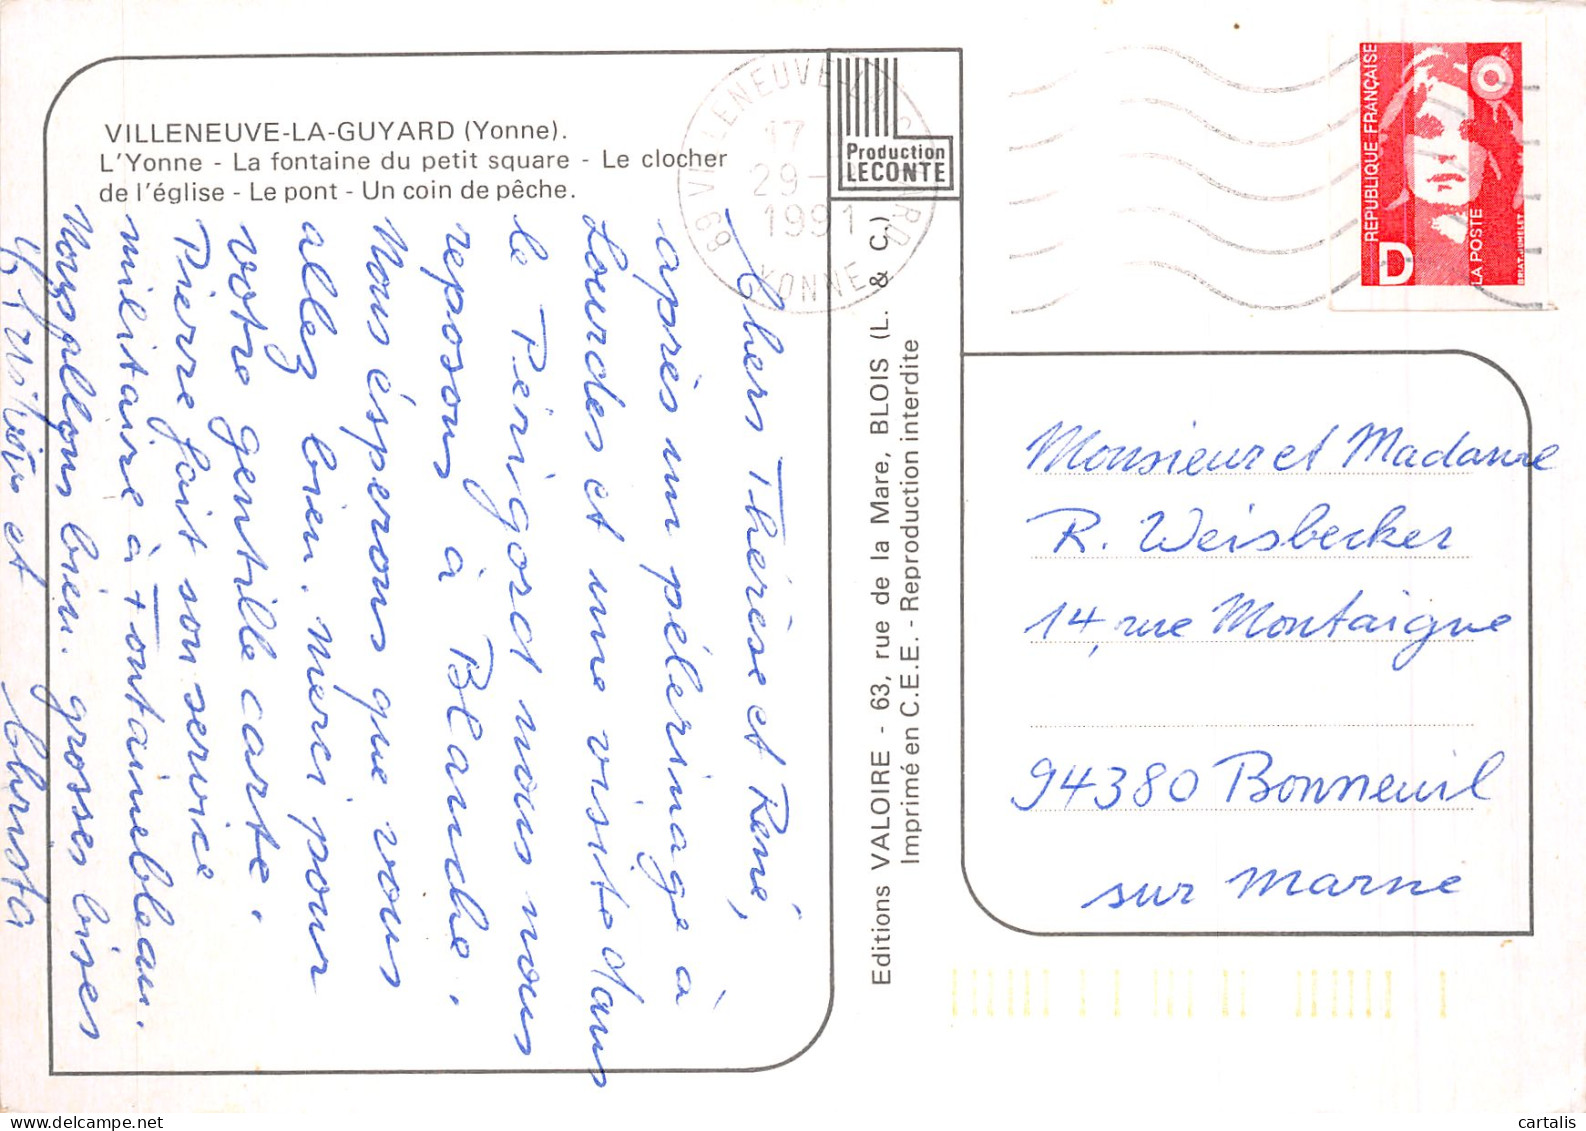 VILLENEUVE-LA-GUYARD (Yonne).
L'Yonne - La fontaine du petit square - Le clocher
de l'église - Le pont - Un coin de pêche.
Chers Thérèse et René,
après un pélerinage à
Lourdes et une visite dans
le Périgord nous nous
reposons à Blanche.
Nous éspérons que vous
allez bien. Merci pour
votre gentille carte.
Pierre fait son service
militaire à Fontainebleau.
Nous allons bien. grosses bises
et Christa
VILLENEUVE-LA-GUYARD
17
29-
1991
89 YONNE
Production
LECONTE
Editions VALOIRE - 63, rue de la Mare, BLOIS (L. & C.)
Imprimé en C.E.E. - Reproduction interdite
REPUBLIQUE FRANÇAISE
D
LA POSTE
BRIAT.JUMELET
Monsieur et Madame
R. Weisbecker
14, rue Montaigne
94380 Bonneuil
sur Marne
cartalis